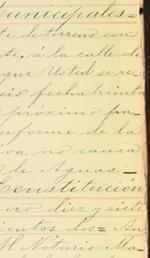 unicipales=
te de terreno con
te, á la calle de
que Usted se re
cio fecha treinta
próximo pa-
informe de la
va no causa
de Aguas=
Constitución
ero diez y siete
cientos dos= An
El Notario Ma